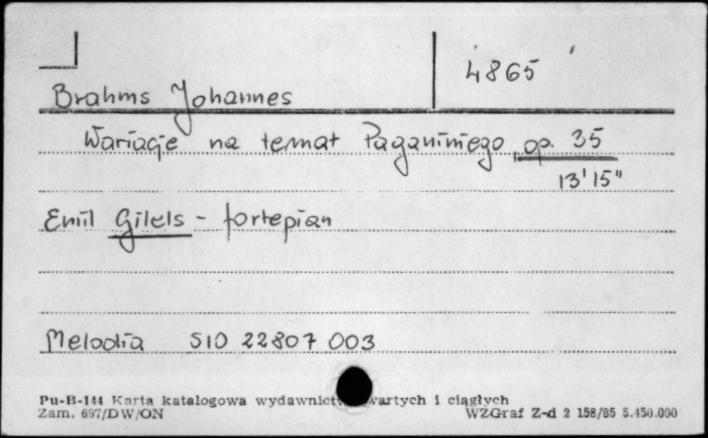 4865
Brahms Johannes
Wariacje na temat Paganiniego op. 35
13'15"
Emil Gilels - fortepian
Melodia S10 22807 003
Pu-B-144 Karta katalogowa wydawnictw zwartych i ciągłych
Zam. 697/DW/ON WZGraf Z-d 2 158/85 5.450.000